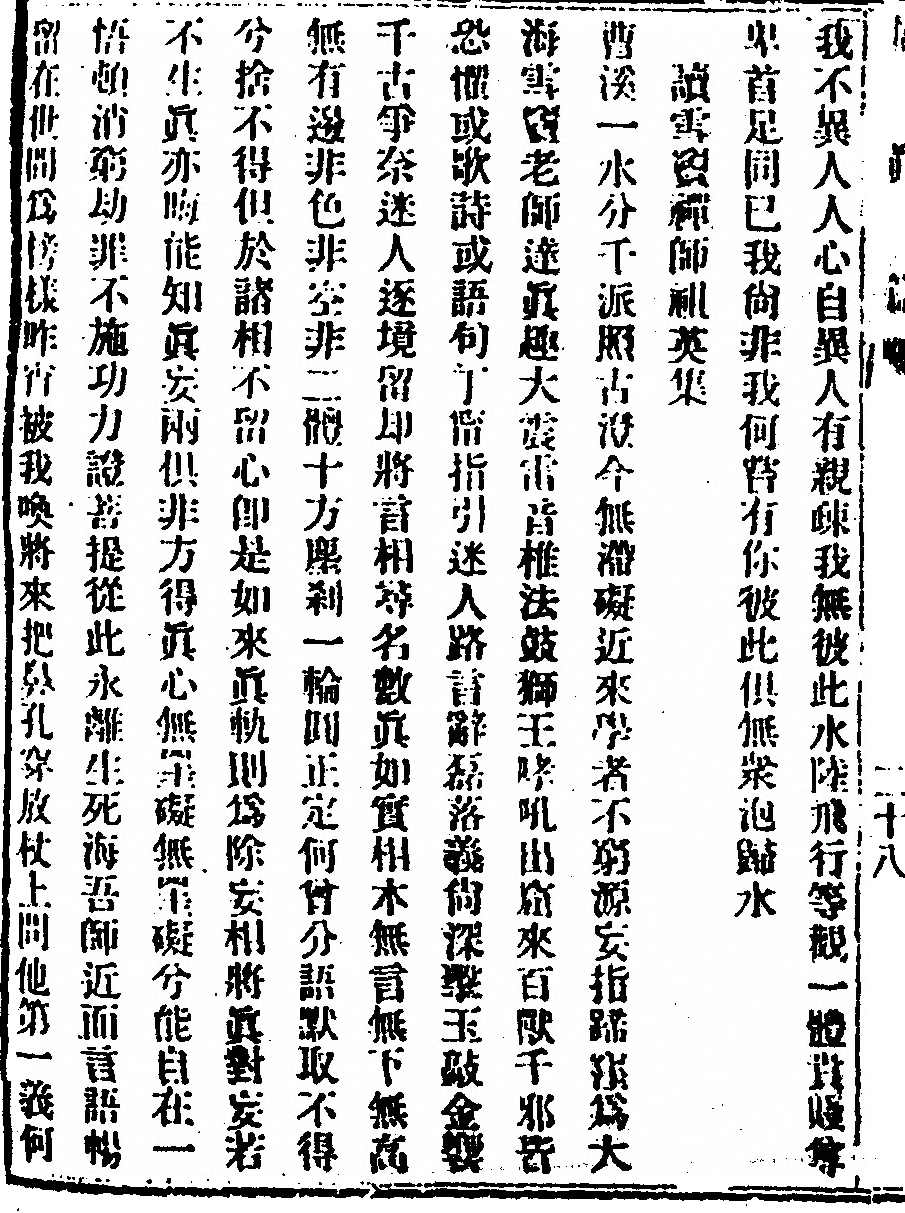 二十八
我不異人人心自異人有親疎我無彼此水陸飛行等觀一體貴賤尊
卑首足同已我尚非我何嘗有你彼此俱無衆泡歸水
讀雪竇禪師祖英集
曹溪一水分千派照古澄今無滯礙近來學者不窮源妄指蹄窪爲大
海雪竇老師達眞趣大震雷音椎法鼓獅王哮吼出窟來百獸千邪皆
恐懼或歌詩或語句丁寧指引迷人路言辭磊落義尚深擊玉敲金響
千古爭奈迷人逐境留却將言相尋名數眞如實相本無言無下無高
無有邊非色非空非二體十方塵剎一輪圓正定何曾分語默取不得
兮捨不得但於諸相不留心卽是如來眞軌則爲除妄相將眞對妄若
不生眞亦晦能知眞妄兩俱非方得眞心無罣礙無罣礙兮能自在一
悟頓消窮劫罪不施功力證菩提從此永離生死海吾師近而言語暢
留在世間爲榜樣昨宵被我喚將來把鼻孔穿放杖上問他第一義何